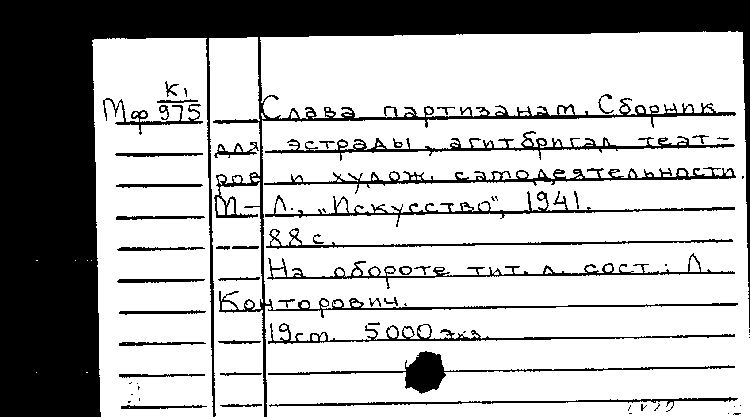 К1
Мф 975
Слава партизанам. Сборник
для эстрады, агитбригад, театров
ров и худож. самодеятельности.
М.-Л., "Искусство", 1941.
88 с.
На обороте тит. л. сост.: Л.
Конторович.
19 см. 5000 экз.